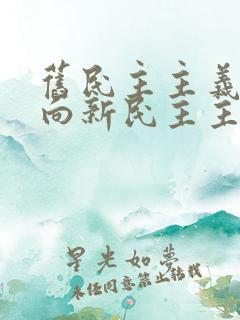 舊民主主義
向新民主主
星光如夢
未经同意禁止转载